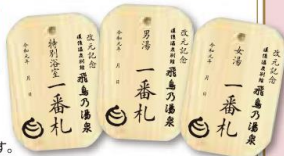 改元記念
道後温泉別館
飛鳥乃湯泉
特別浴室
一番札
令和元年 月 日
改元記念
道後温泉別館
飛鳥乃湯泉
男湯
一番札
令和元年 月 日
改元記念
道後温泉別館
飛鳥乃湯泉
女湯
一番札
令和元年 月 日
す。